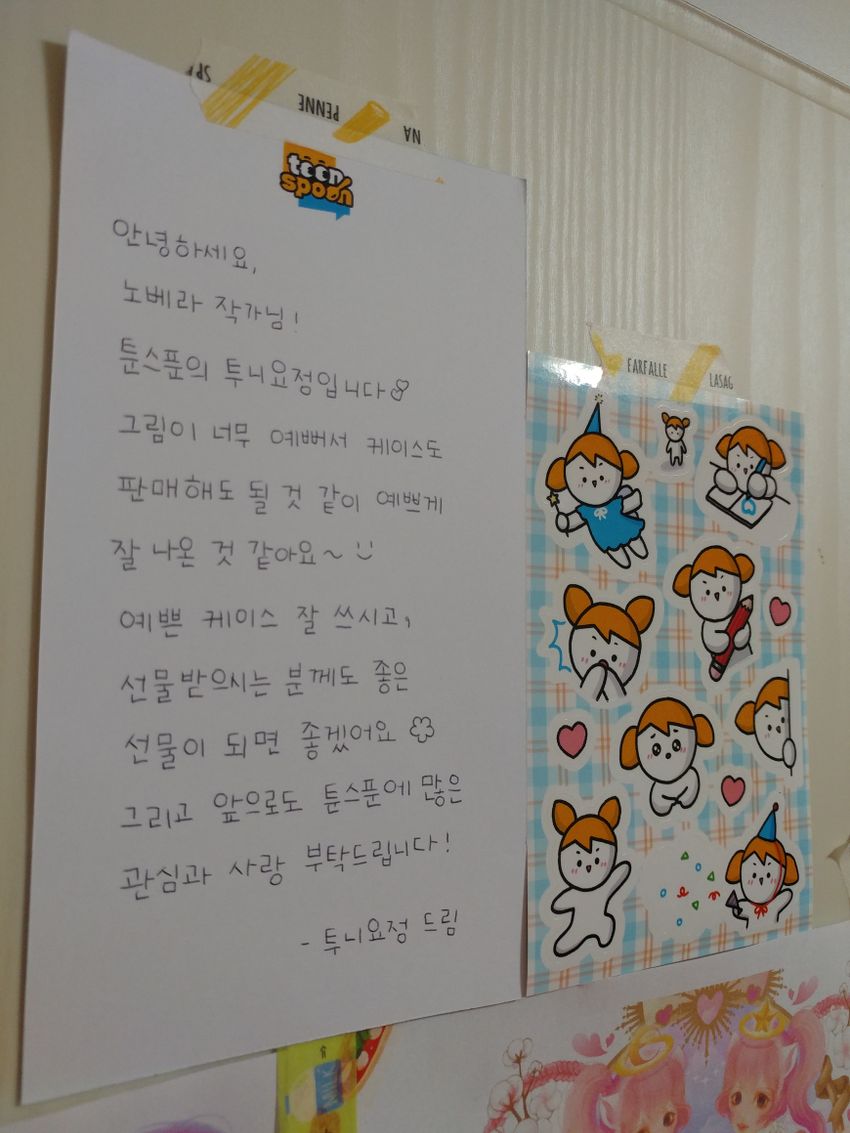 PENNE
NA
toon
spoon
안녕하세요,
노베라 작가님!
툰스푼의 투니요정입니다
그림이 너무 예뻐서 케이스도
판매해도 될 것 같이 예쁘게
잘 나온 것 같아요~ :)
예쁜 케이스 잘 쓰시고,
선물받으시는 분께도 좋은
선물이 되면 좋겠어요
그리고 앞으로도 툰스푼에 많은
관심과 사랑 부탁드립니다!
- 투니요정 드림
FARFALLE
LASAG
MILK